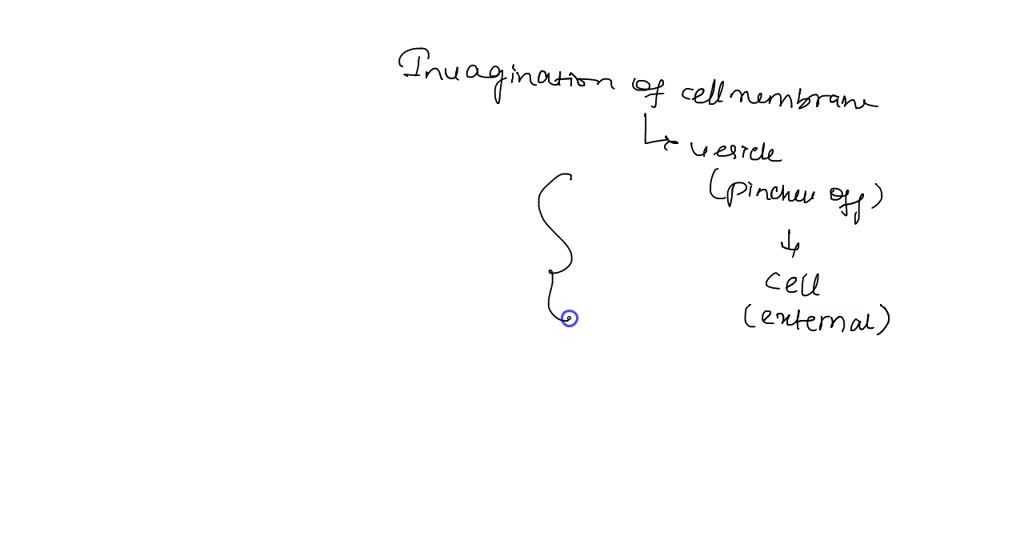 Invagination of cell membrane
↳ vesicle
(pinches off)
↓
cell
(external)